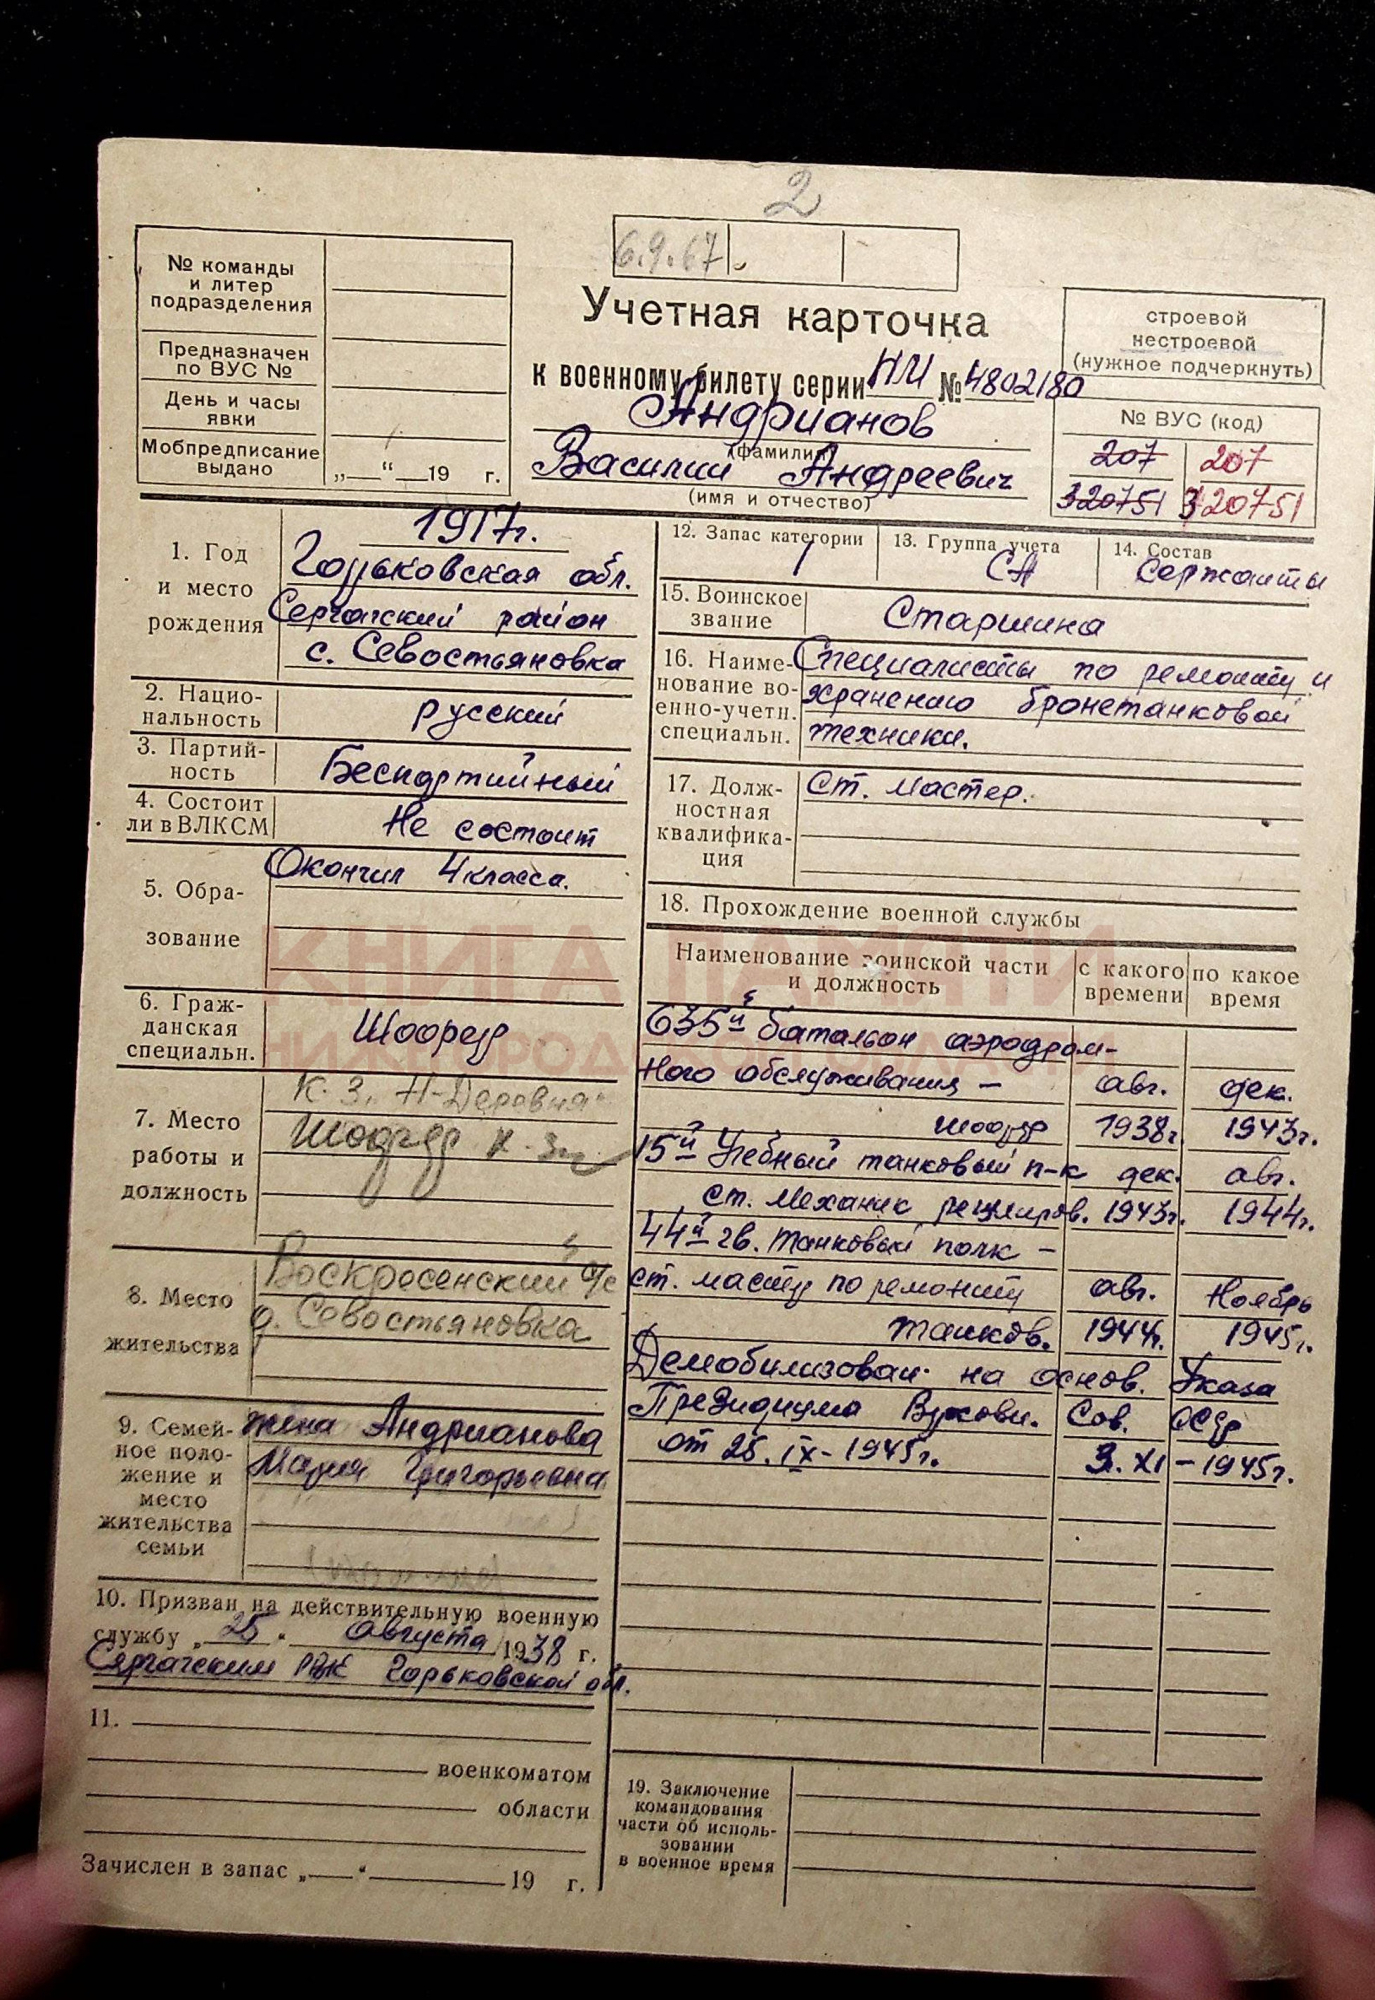 2
6.9.67
№ команды
и литер
подразделения
Предназначен
по ВУС №
День и часы
явки
Мобпредписание
выдано
„—“—19 г.
Учетная карточка
к военному билету серии НИ № 4802180
Андрианов
(фамилия)
Василий Андреевич
(имя и отчество)
строевой
нестроевой
(нужное подчеркнуть)
№ ВУС (код)
207 207
320751 320751
1. Год
и место
рождения
1917г.
Горьковская обл.
Сергачский район
с. Севостьяновка
2. Нацио-
нальность
русский
3. Партий-
ность
Беспартийный
4. Состоит
ли в ВЛКСМ
Не состоит
5. Обра-
зование
Окончил 4 класса.
6. Граж-
данская
специальн.
Шофер
7. Место
работы и
должность
к-з. Н-Деревня
Шофер к-з
8. Место
жительства
Воскресенский с/с
д. Севостьяновка
9. Семей-
ное поло-
жение и
место
жительства
семьи
жена Андрианова
Мария Григорьевна
10. Призван на действительную военную
службу „25“ августа 1938 г.
Сергачским РВК Горьковской обл.
11.
военкоматом
области
Зачислен в запас „—“ 19 г.
12. Запас категории
1
13. Группа учета
СА
14. Состав
Сержанты
15. Воинское
звание
Старшина
16. Наиме-
нование во-
енно-учетн.
специальн.
Специалисты по ремонту и
хранению бронетанковой
техники.
17. Долж-
ностная
квалифика-
ция
Ст. мастер.
18. Прохождение военной службы
Наименование воинской части
и должность
с какого
времени
по какое
время
635й батальон аэродром-
ного обслуживания – авг. дек.
шофер 1938г. 1943г.
15й Учебный танковый п-к дек. авг.
ст. механик регулиров. 1943г. 1944г.
44й гв. танковый полк –
ст. мастер по ремонту авг. Ноябрь
танков. 1944г. 1945г.
Демобилизован на основ. Указа
Президиума Верховн. Сов. СССР
от 25.IX-1945г. 3.XI-1945г.
19. Заключение
командования
части об исполь-
зовании
в военное время
КНИГА ПАМЯТИ
НИЖЕГОРОДСКОЙ ОБЛАСТИ